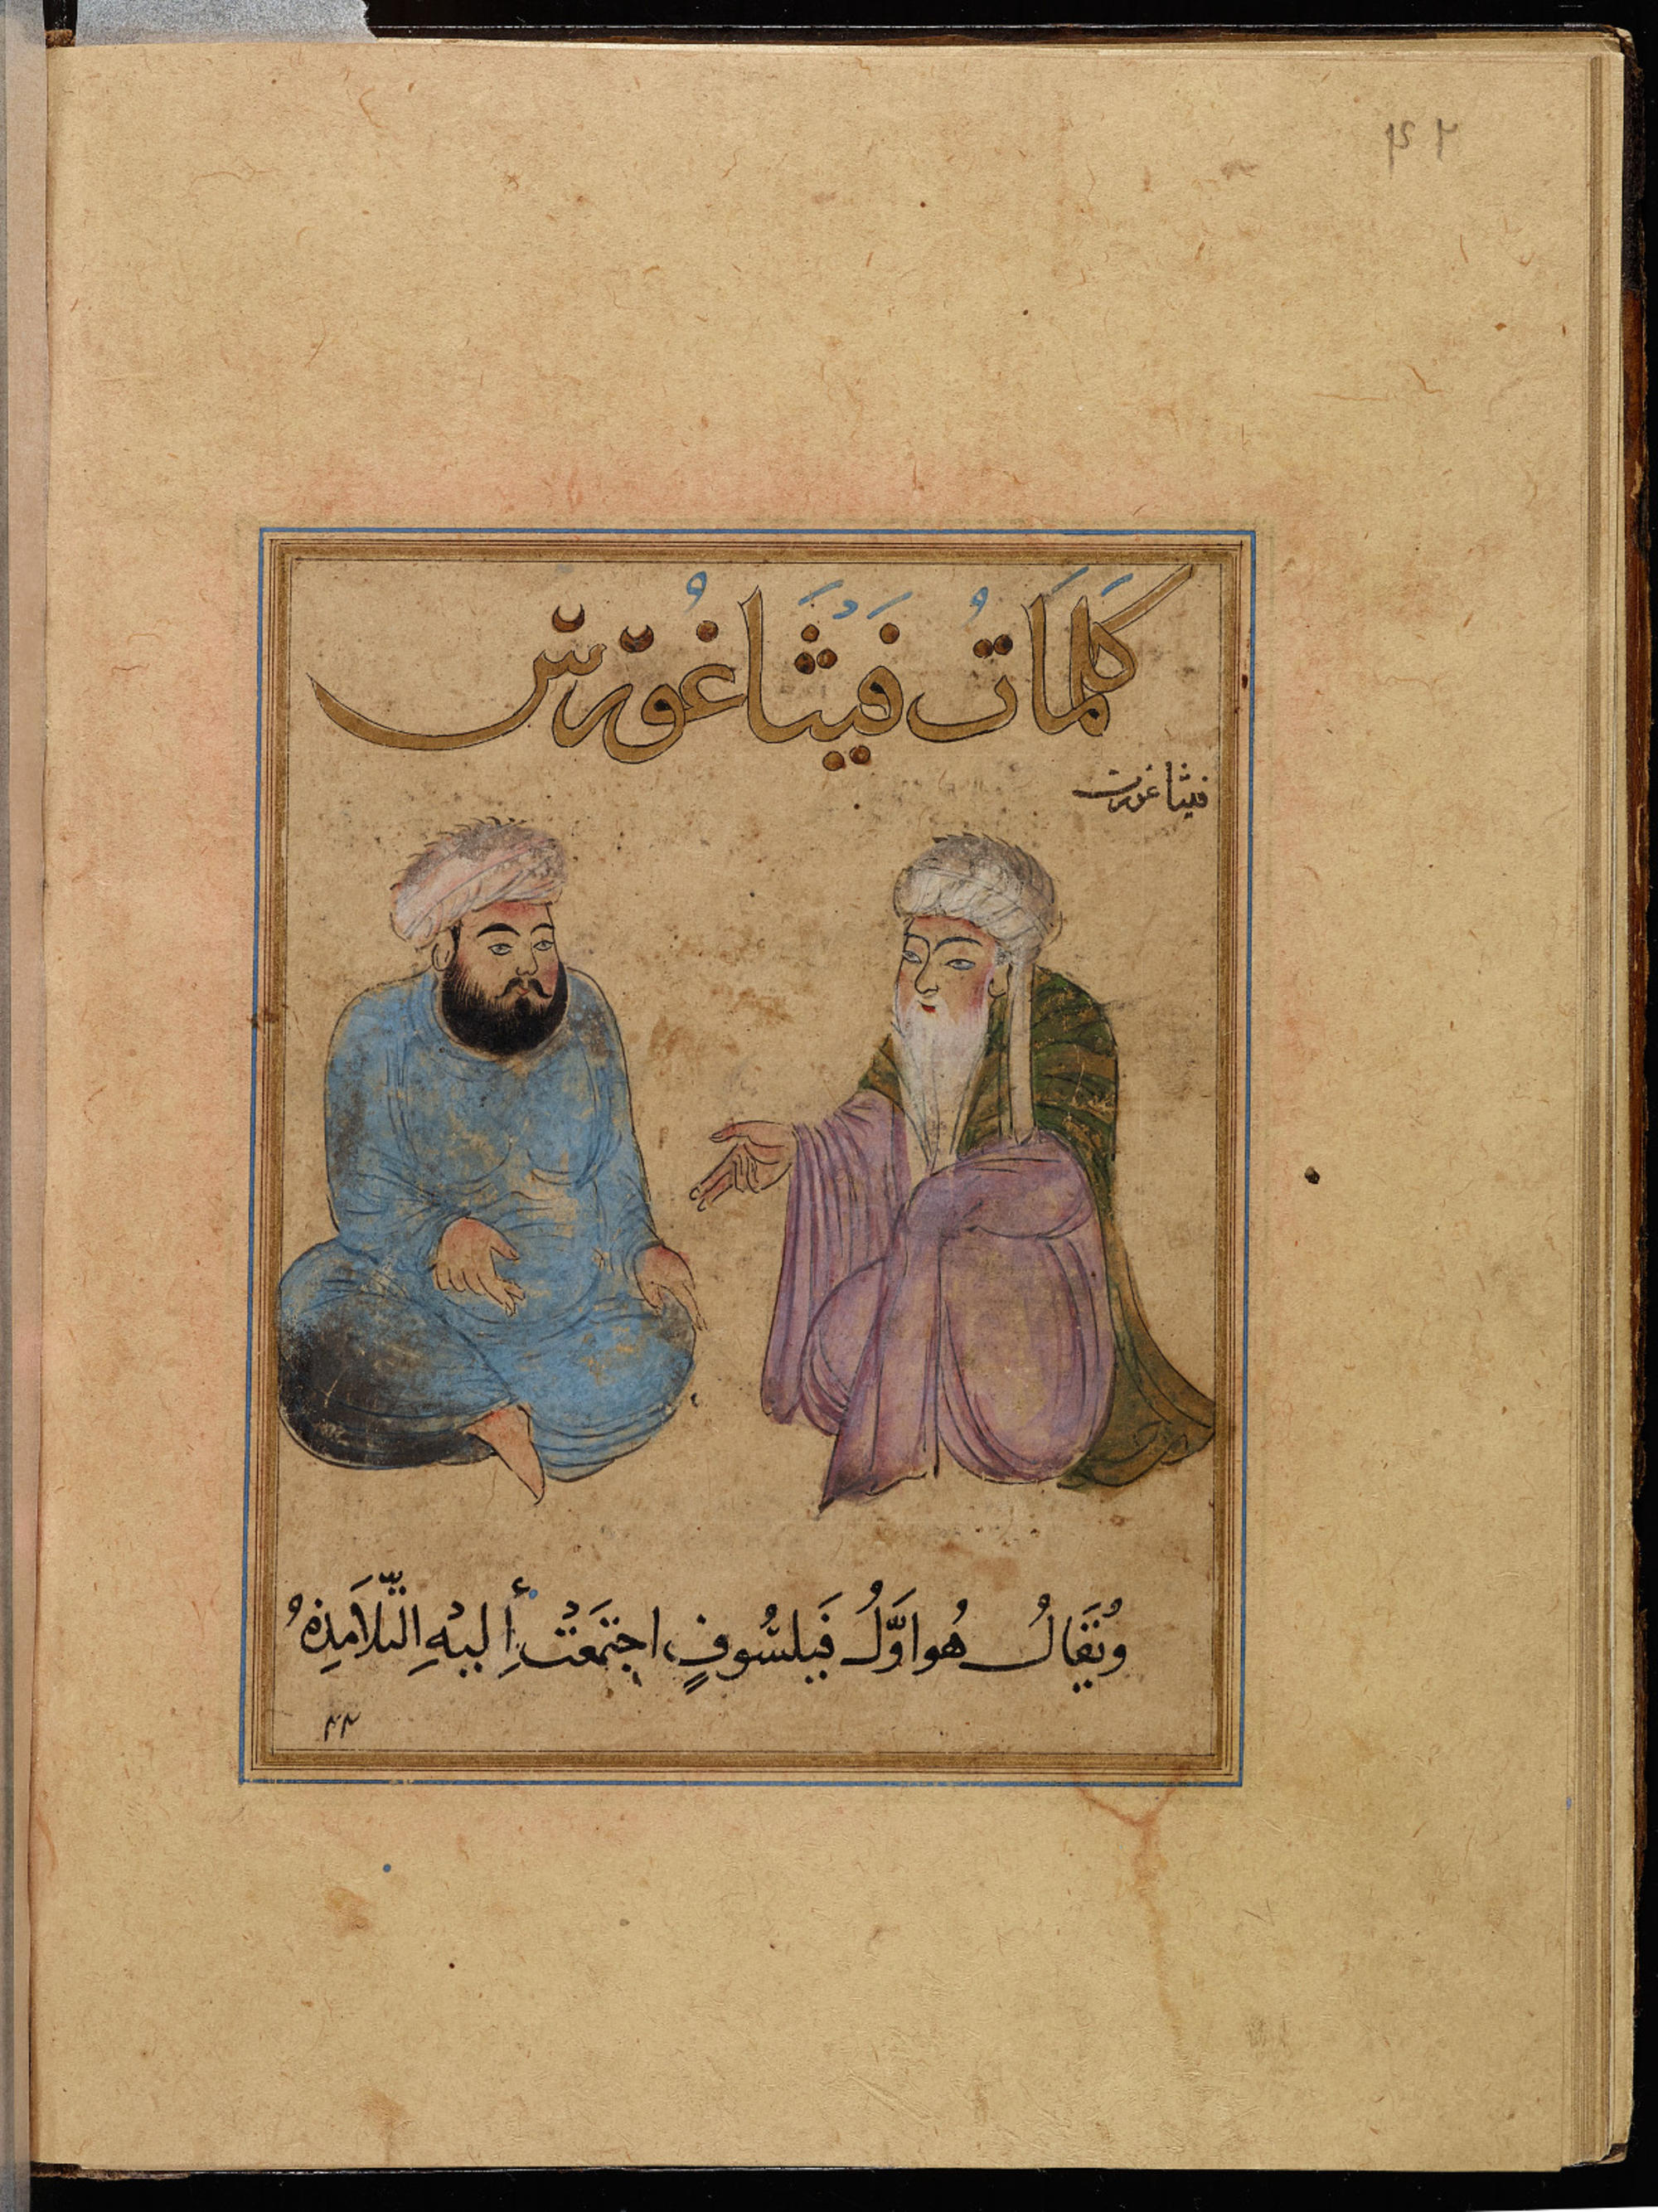 كَلِمَاتُ فَيْثَاغُورَس
فيثاغورس
وَيُقَالُ هُوَ اوَّلُ فَيلسُوفٍ اجتَمَعَتْ إِليْهِ التَّلاَمِذِهُ